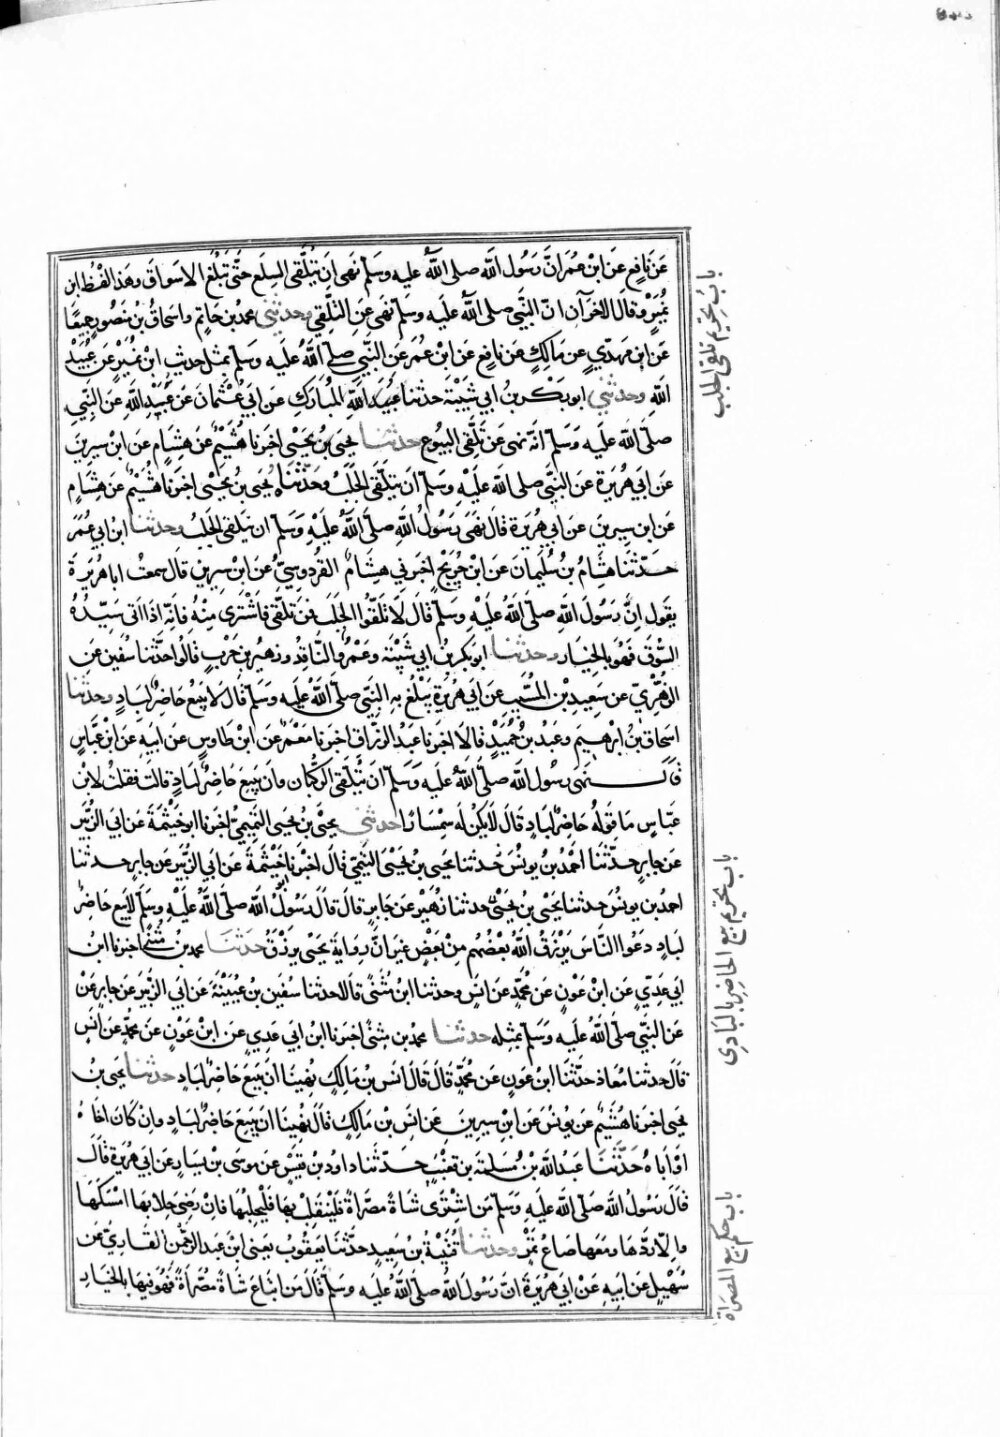 عَن نافِعٍ عَن ابْن عُمَرَ انَّ رَسُول الله صلى الله عليه وسلم نهى ان يُتلَقّى السِلَع حتّى تَبْلغ الاسواق وهذا لفظ ابن
نُمَيْرٍ وقال الآخرانِ انّ النَّبيّ صلى الله عليه وسلم نهى عَن التلقّي وحدثني محمد بن حاتم واسحاق بن منصور جميعًا
عَن ابن مهدي عن مَالِكٍ عَن نافِع عَن ابْن عُمَرَ عَن النّبيّ صلى الله عليه وسلم بمثل حديث ابْن نُميْر عَن عُبَيْد
الله وحدثني ابو بَكْر بنُ ابي شَيْبَة حدثنا عبد الله المُبَارَكِ عَن ابي عُثْمَانَ عَن عَبْدِ الله عَن النّبي
صلى الله عليه وسلم انّه نهى عَن تلَقّي البيُوع حدثنا يحيى بن يَحْيى اخبرنا هُشَيْمٌ عَن هشام عن ابن سيرين
عَن ابي هُرَيرَة عَن النبيّ صلى الله عَلَيْهِ وسلم ان يتلَقّى الجَلَبُ وحَدّثنَا يحيى بن يَحْيى اخبرنا هُشَيْمٌ عن هشامٍ
عَن ابن سيرين عَن ابي هُرَيرَة قَالَ نَهَى رَسُولُ الله صلى الله عَلَيْهِ وسلم ان يتلقى الجَلبُ وحدثنا ابن ابي عُمَرَ
حَدّثَنا هشَامُ بن سُلَيمان عَن ابن جُرَيجٍ اخبرني هشامٌ القُردوسيّ عَن ابْن سيرين قَال سمعْتُ ابا هُرَيْرَة
يقول انَّ رَسُولَ الله صلى الله عَلَيْهِ وسلم قال لَا تلَقّوُا الجَلَبَ فمن تَلَقّى فاشْتَرى مِنهُ فإنّه اذَا اتى سَيّدُهُ
السُّوقَ فَهُوَ بالخيَار وحدثنا ابو بكر بن ابي شَيْبَة وعَمْرو النَّاقد وزهَيْر بن حَرب قَالوا حدّثنا سُفين عن
الزُّهْرِيّ عن سَعِيد بْن المُسَيّب عَن ابي هُرَيرَة يَبلُغُ به النَّبيّ صلى الله عليه وسلم قَال لَا يَبِعْ حَاضِرٌ لِبَادٍ وحدثنا
اسحاق بن ابرهيم وعَبد بن حُمَيْدٍ قالا اخبرنا عَبد الرّزاق اخبرنا مَعْمَرٌ عَن ابن طاوس عن ابيه عن ابن عَبّاسٍ
قال نَهَى رسُول الله صلى الله عليه وسلم انَ يتلَقّى الركْبَان وان يَبيعَ حَاضِرٌ لِبَادٍ قالت فقلتُ لابْن
عَبّاسٍ مَا قولُهُ حَاضرٌ لِبَادٍ قَالَ لا يَكُن لَه سِمْسَارًا حدثني يَحيى بنُ يحيى التَّميميّ اخبرنا ابو خَيْثمة عَن ابي الزُّبَيْر
عَن جابرٍ حَدّثَنا احْمَدُ بن يونسَ حَدثنا يحيى بن يَحْيى التميمي قَال اخبرنا خَيْثمة عَن ابي الزُّبير عن جابر حدثنا
احمد بن يونس حَدثنا يحيى بن يَحْيى حدثنا زُهَيرْ عَن جَابرٍ قَالَ قَالَ رَسُولُ الله صلى الله عَلَيْهِ وسلم لا يَبِعْ حَاضِرٌ
لبادٍ دعُوا النّاسَ يَرْزقُ اللهُ بَعْضهُم مِنْ بَعْضٍ غيرَ انَّ رِوَاية يَحْيى يرزَقُ حَدّثنا محمد بن مُثَنّى اخبرنا ابن
ابي عَديٍ عَن ابن عَونٍ عَن محمّدٍ عَن انس وحدثنا ابن مُثنّى قالا حدثنا سُفين بن عُيَيْنَة عَن ابي الزّبَير عن جابرٍ عَنْ
عَن النبي صلى الله عليه وسلم بمثله حدثنا محمد بن مثنى اخبرنا ابن ابي عدي عَن ابن عَوْن عَن محمد عن انسٍ
قَال حدثنا مُعَاذ حدّثَنا ابن عَونٍ عَن محمّدٍ قَال قَال انس بن مَالِكٍ نهينا ان يَبيعَ حَاضِرٌ لِبَادٍ حدثنا يحيى بن
يحيى اخبرنا هُشَيْمٌ عَن يُونُسَ عَن ابن سِيرينَ عَن انَس بن مَالِكٍ قالَ نُهِينَا ان يَبيعَ حَاضِرٌ لِبَادٍ وان كَان اخَاهُ
اوْ اباهُ حَدّثَنَا عبدُ الله بن مُسلمة بن قعْنَبٍ حَدّثَنا داود بن قيس عَن موسى بن يسار عن ابي هُرَيرَة قَالَ
قَال رَسُولُ الله صلى الله عليه وسلم مَن اشْتَرى شَاةً مصَرّاة فليَنْقَلِب بهَا فَلْيَحلِبْها فانْ رضيَ حِلابها امْسَكهَا
والّا رَدّها ومَعَهَا صَاعُ تمْرٍ وحدثنا قُتَيْبَة بن سَعِيدٍ حدّثَنا يَعْقوب يعني ابن عبد الرّحمن القاري عن
سُهَيْلٍ عَن ابيهِ عَن ابي هُرَيرَة انّ رَسُول الله صلى الله عليه وسلم قَال مَن ابتَاعَ شَاةً مُصَرّاةً فَهُوَ فيهَا بالخيار
باب تحريم تلقي الجلب
باب تحريم بيع الحاضر بالبَادِي
باب حكم بيع المصرّاة